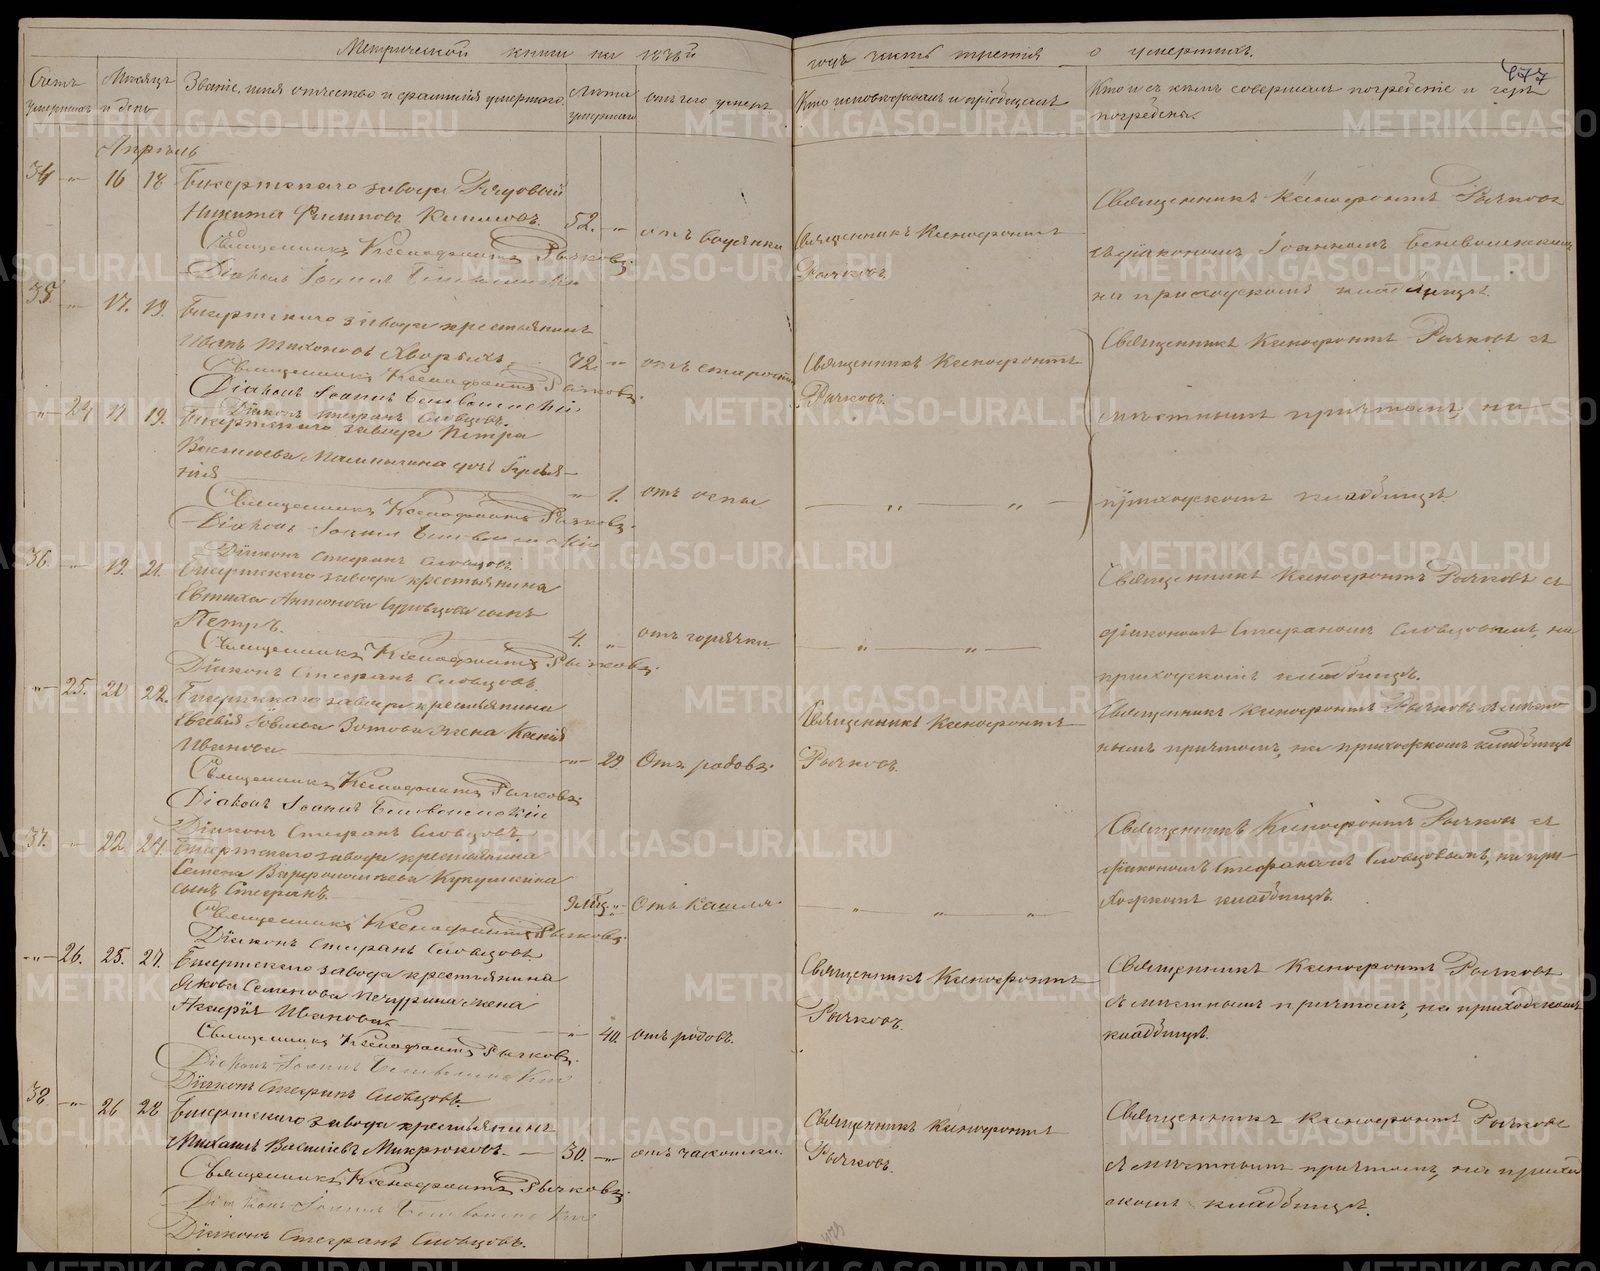 Метрической книги на 1878й
годъ часть третія о умершихъ.
477
Счетъ умершихъ
Мѣсяцъ и день
Званіе, имя отчество и фамилія умершаго.
Лѣта умершаго
отъ чего умеръ
Кто исповѣдывалъ и пріобщалъ
Кто и съ кѣмъ совершалъ погребеніе и гдѣ
погребены.
Апрѣль
34 " 16 18 Бисертскаго завода Рядовый
Никита Филиповъ 52. " отъ водянки
Священникъ Ксенофонтъ Рычковъ
Діаконъ Іоаннъ
Священникъ Ксенофонтъ
Рычковъ.
Священникъ Ксенофонтъ Рычковъ
съ діакономъ Іоанномъ
на приходскомъ кладбищѣ.
35 " 17. 19. Бисертскаго завода крестьянинъ
Иванъ Тихоновъ 72. " отъ старости
Священникъ Ксенофонтъ Рычковъ.
Діаконъ Іоаннъ
Діаконъ Стефанъ Словцовъ.
Священникъ Ксенофонтъ
Рычковъ.
Священникъ Ксенофонтъ Рычковъ съ
мѣстнымъ причтомъ, на
приходскомъ кладбищѣ.
" 24 17 19. Бисертскаго завода Петра
дочь
" 1. отъ оспы
Священникъ Ксенофонтъ Рычковъ.
Діаконъ Іоаннъ
Діаконъ Стефанъ Словцовъ.
36. " 19. 21. Бисертскаго завода крестьянина
Евтиха Антонова сынъ
Петръ. 4. " отъ горячки
Священникъ Ксенофонтъ Рычковъ.
Діаконъ Стефанъ Словцовъ.
Священникъ Ксенофонтъ Рычковъ съ
діакономъ Стефаномъ Словцовымъ, на
приходскомъ кладбищѣ.
" 25. 20 22. Бисертскаго завода крестьянина
Зотова жена Ксенія
Иванова " 29 Отъ родовъ.
Священникъ Ксенофонтъ Рычковъ
Діаконъ Іоаннъ
Діаконъ Стефанъ Словцовъ.
Священникъ Ксенофонтъ
Рычковъ.
Священникъ Ксенофонтъ Рычковъ съ мѣст-
нымъ причтомъ, на приходскомъ кладбищѣ
37. " 22 24. Бисертскаго завода крестьянина
Семена Варфоломеева Кукушкина
сынъ Стефанъ. Отъ Кашля.
Священникъ Ксенофонтъ Рычковъ.
Діаконъ Стефанъ Словцовъ
Священникъ Ксенофонтъ Рычковъ съ
діакономъ Стефаномъ Словцовымъ, на при-
ходскомъ кладбищѣ.
" 26. 25. 27. Бисертскаго завода крестьянина
Якова Семенова Печурина жена
Иванова. " 40. отъ родовъ.
Священникъ Ксенофонтъ Рычковъ.
Діаконъ Іоаннъ
Діаконъ Стефанъ Словцовъ.
Священникъ Ксенофонтъ
Рычковъ.
Священникъ Ксенофонтъ Рычковъ
съ мѣстнымъ причтомъ, на приходскомъ
кладбищѣ.
38 " 26 28 Бисертскаго завода крестьянинъ
Михаилъ Васильевъ Микрюковъ. 30. " отъ чахотки.
Священникъ Ксенофонтъ Рычковъ.
Діаконъ Іоаннъ
Діаконъ Стефанъ Словцовъ.
Священникъ Ксенофонтъ
Рычковъ.
Священникъ Ксенофонтъ Рычковъ
съ мѣстнымъ причтомъ, на приход
скомъ кладбищѣ.
METRIKI.GASO-URAL.RU